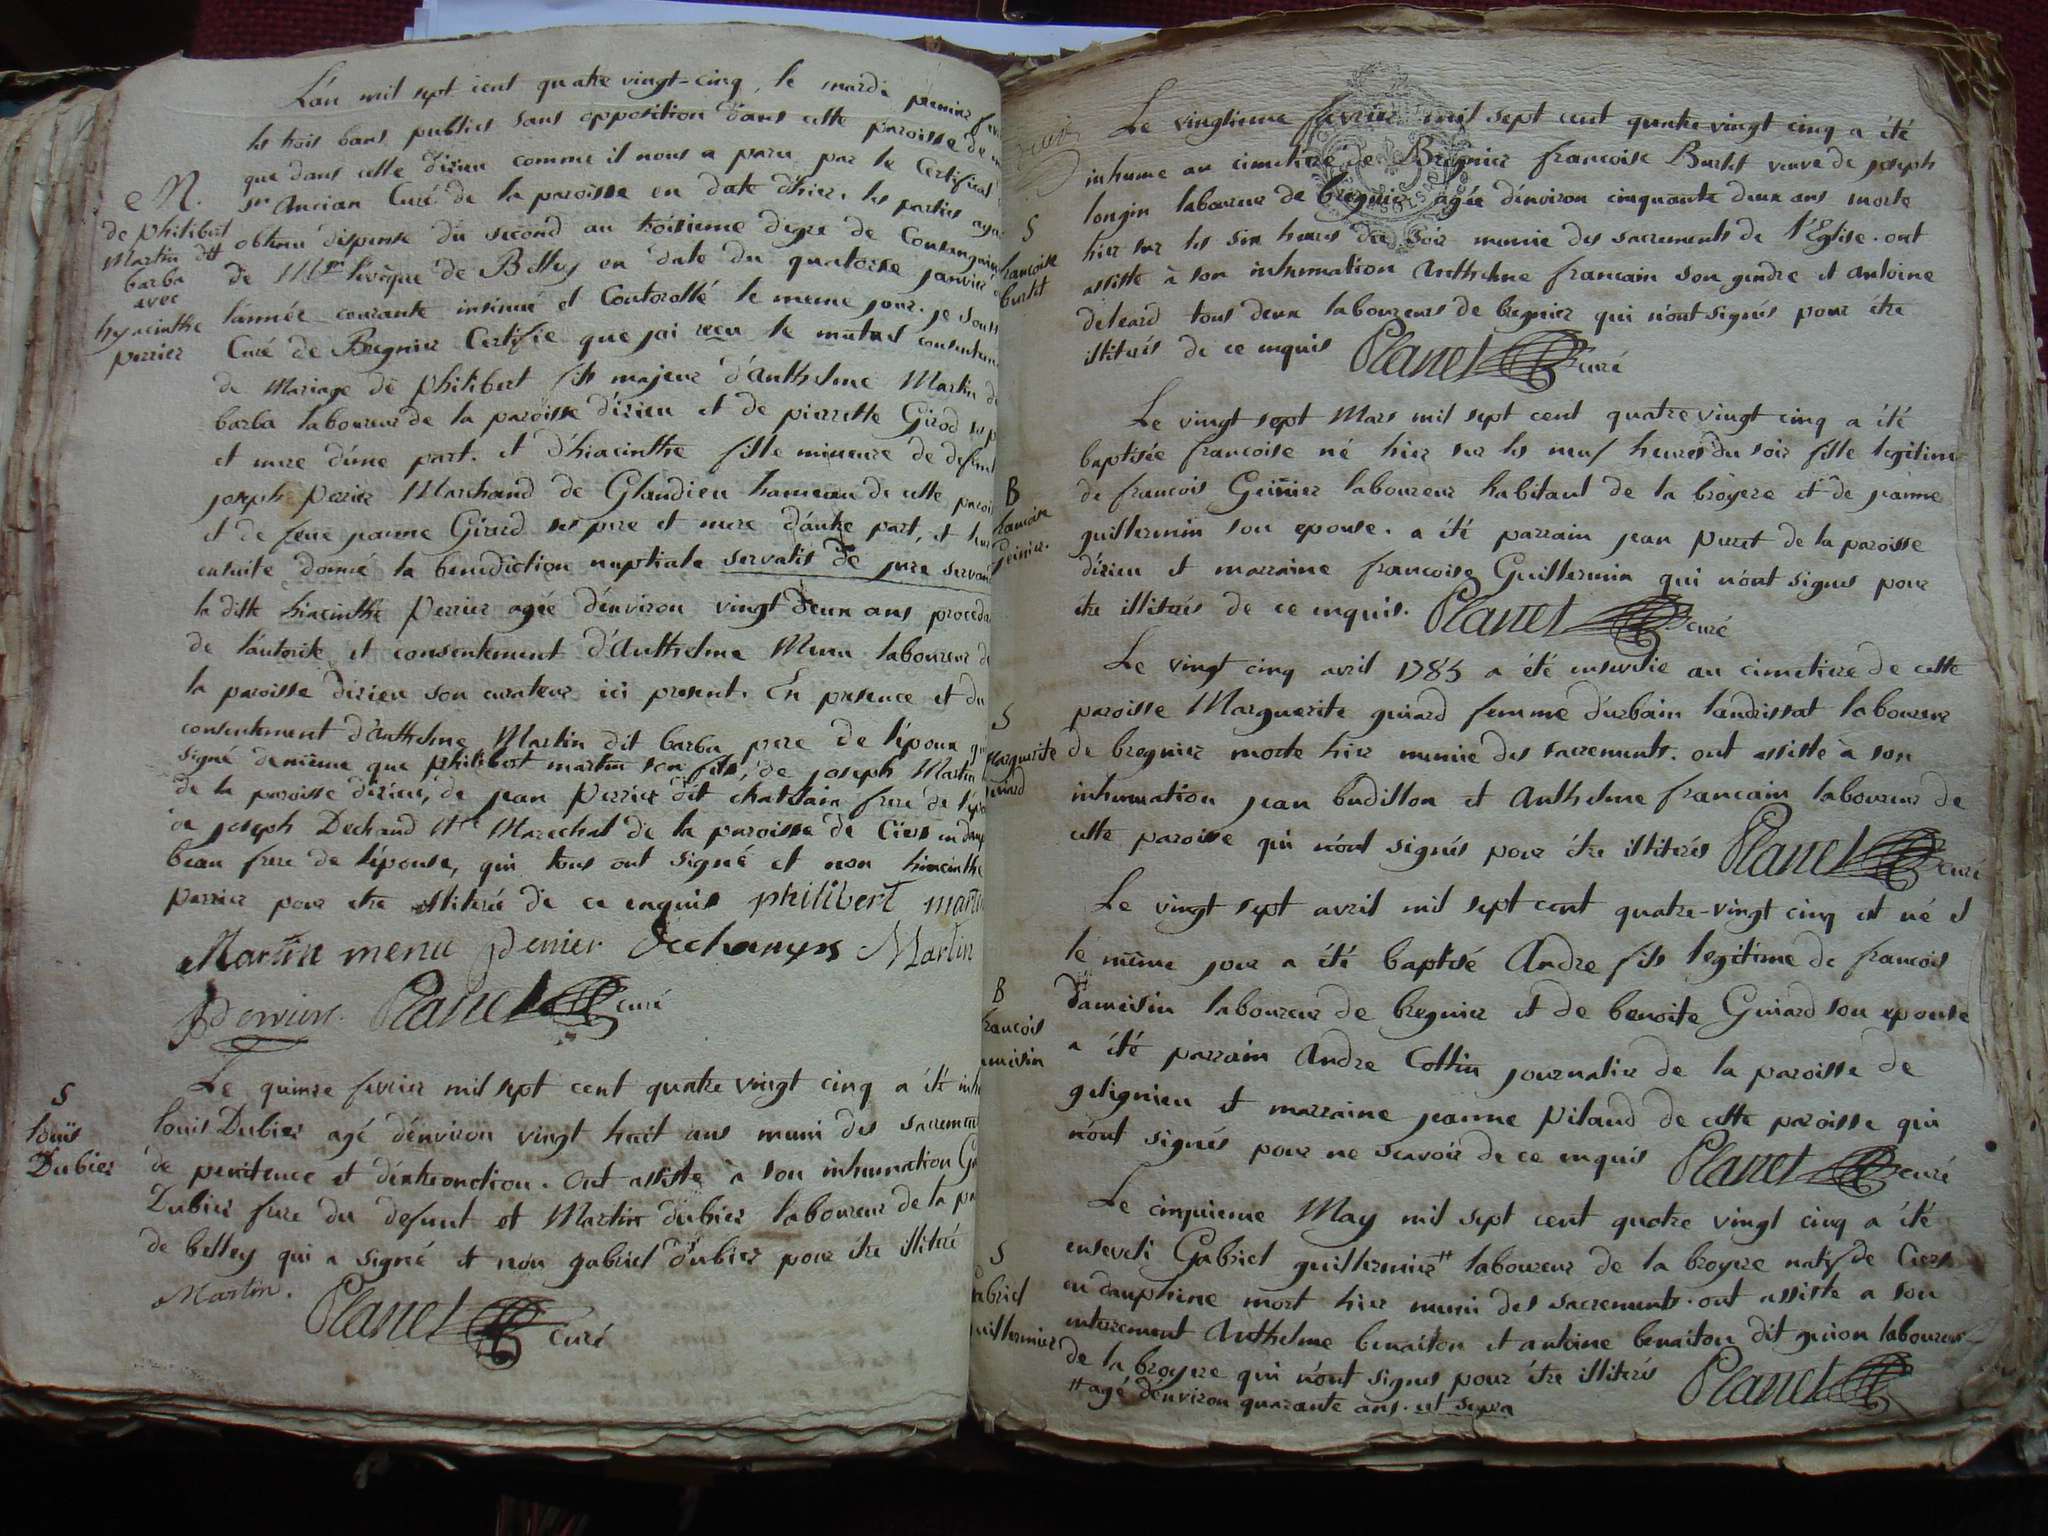 L'an mil sept cent quatre vingt-cinq, le mardi premier
les trois bans publiés sans opposition dans cette paroisse de
que dans celle d'izieu comme il nous a paru par le Certificat
Sr Ancian Curé de la paroisse en date d'hier, les parties
M.
de philibert
Martin dtt
barba
avec
hyacinthe
perrier
obtenu dispense du second au troisieme degre de
de Mgr l'eveque de Belley en date du quatorze janvier
l'année courante insinué et Controllé le meme jour. je
Curé de Bregnier Certifie que jai recu le mutuel
de Mariage de philibert fils majeur d'anthelme Martin
barba laboureur de la paroisse d'izieu et de pierrette Girod
et mere d'une part. et d'hiacinthe fille mineure de
joseph perrier Marchand de Glandieu hameau de cette
et de feue jeanne Girard ses pere et mere d'autre part, et
ensuite donné la benediction nuptiale servatis de jure
la ditte hiacinthe perrier agée d'environ vingt deux ans
de l'autorité et consentement d'Anthelme Menu laboureur
la paroisse d'izieu son curateur ici present. En presence et du
consentement d'Anthelme Martin dit barba pere de l'epoux
signé de même que philibert martin son fils, de joseph Martin
de la paroisse d'izieu, de jean perrier dit chatelain frere de
de joseph Dechand Me Marechal de la paroisse de Ciers en
beau frere de l'epouse, qui tous ont signé et non hiacinthe
perrier pour etre illiterée de ce enquis philibert martin
Martin menu perrier Martin
perrier. Planet curé
S
louis
Dubier
Le quinze fevrier mil sept cent quatre vingt cinq a été
louis Dubier agé d'environ vingt huit ans muni des
de penitence et d'extreonction. Ont assisté à son inhumation
Dubier frere du defunt et Martin dubier laboureur de la
de belley qui a signé et non gabriel dubier pour être illiteré
Martin.
Planet Curé
Le vingtieme fevrier mil sept cent quatre-vingt cinq a été
inhume au cimetiere de Bregnier francoise Burlet veuve de joseph
longin laboureur de bregnier agée d'environ cinquante deux ans morte
S
francoise
burlet
hier sur les six heures du soir munie des sacrements de l'Eglise. ont
assisté à son inhumation Anthelme francain son gendre et antoine
deleard tous deux laboureurs de bregnier qui n'ont signés pour être
illiterés de ce enquis Planet curé
Le vingt sept Mars mil sept cent quatre vingt cinq a été
baptisée francoise né hier sur les neuf heures du soir fille legitime
B
francoise
Geinier.
de francois Geinier laboureur habitant de la broyere et de jeanne
guillermin son epouse. a été parrain jean perret de la paroisse
d'izieu et marraine francoise Guillermin qui n'ont signés pour
être illiterés de ce enquis. Planet curé
Le vingt cinq avril 1785 a été ensevelie au cimetiere de cette
S
Marguerite
guiard
paroisse Marguerite guiard femme d'urbain landrissat laboureur
de bregnier morte hier munie des sacrements. ont assisté à son
inhumation jean budillon et Anthelme francain laboureur de
cette paroisse qui n'ont signés pour être illiterés Planet curé
Le vingt sept avril mil sept cent quatre-vingt cinq est né et
le même jour a été baptisé Andre fils legitime de francois
B
francois
Dameisin laboureur de bregnier et de benoite Guiard son epouse
a été parrain Andre Cottin journalier de la paroisse de
gelignieu et marraine jeanne pilaud de cette paroisse qui
n'ont signés pour ne scavoir de ce enquis Planet curé
Le cinquieme May mil sept cent quatre vingt cinq a été
S
gabriel
guillermier
enseveli Gabriel guillermier++ laboureur de la broyere natif de Ciers
en dauphine mort hier muni des sacrements. ont assisté a son
enterrement Anthelme benaiton et antoine benaiton dit guion laboureur
de la broyere qui n'ont signés pour être illiterés Planet
++ agé d'environ quarante ans. ut supra